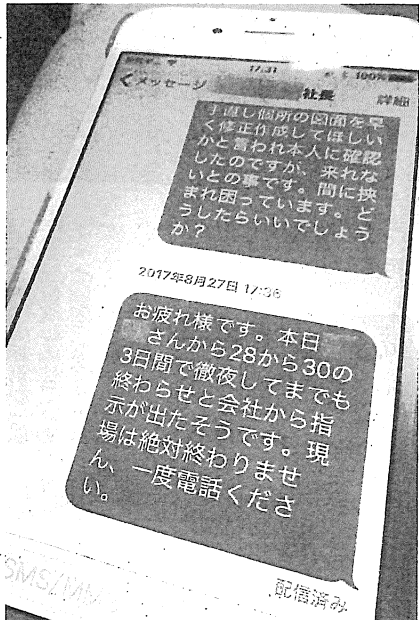 17:31
100%
メッセージ
社長
詳細
手直し個所の図面を早
く修正作成してほしい
かと言われ本人に確認
したのですが、来れな
いとの事です。間に挟
まれ困っています。ど
うしたらいいでしょう
か？
2017年8月27日 17:36
お疲れ様です。本日
さんから28から30の
3日間で徹夜してまでも
終わらせと会社から指
示が出たそうです。現
場は絶対終わりませ
ん、一度電話くださ
い。
配信済み
SMS/MM